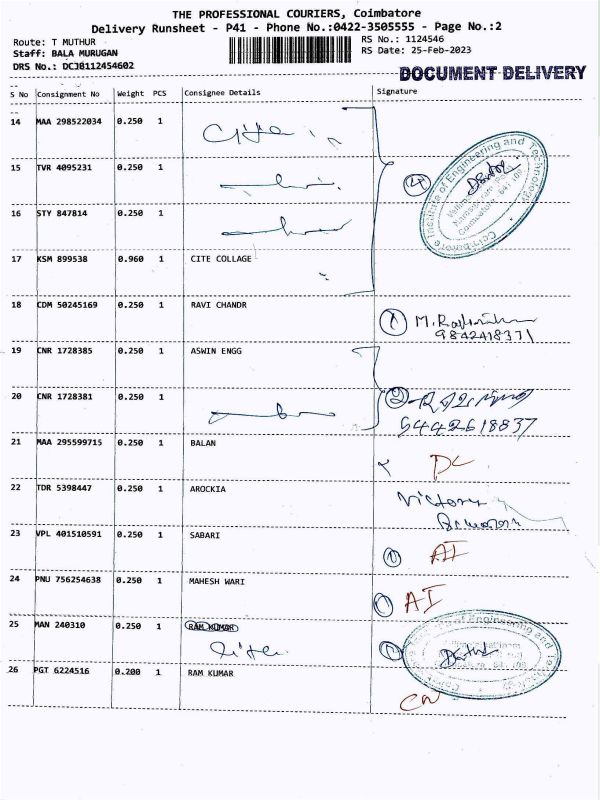 THE PROFESSIONAL COURIERS, Coimbatore
Delivery Runsheet - P41 - Phone No.:0422-3505555 - Page No.:2
Route: T MUTHUR
RS No.: 1124546
Staff: BALA MURUGAN
RS Date: 25-Feb-2023
DRS No.: DCJB112454602
DOCUMENT DELIVERY
S No Consignment No Weight PCS Consignee Details Signature
14 MAA 298522034 0.250 1
15 TVR 4095231 0.250 1
4
Institute of Engineering and Technology
Coimbatore
16 STY 847814 0.250 1
17 KSM 899538 0.960 1 CITE COLLAGE
18 CDM 50245169 0.250 1 RAVI CHANDR
1 M.
9842418371
19 CNR 1728385 0.250 1 ASWIN ENGG
20 CNR 1728381 0.250 1
2
9442618837
21 MAA 295599715 0.250 1 BALAN
DL
22 TDR 5398447 0.250 1 AROCKIA
Victory
23 VPL 401510591 0.250 1 SABARI
1 AI
24 PNU 756254638 0.250 1 MAHESH WARI
1 AI
25 MAN 240310 0.250 1 RAM KUMAR
of Engineering and
26 PGT 6224516 0.200 1 RAM KUMAR
CN